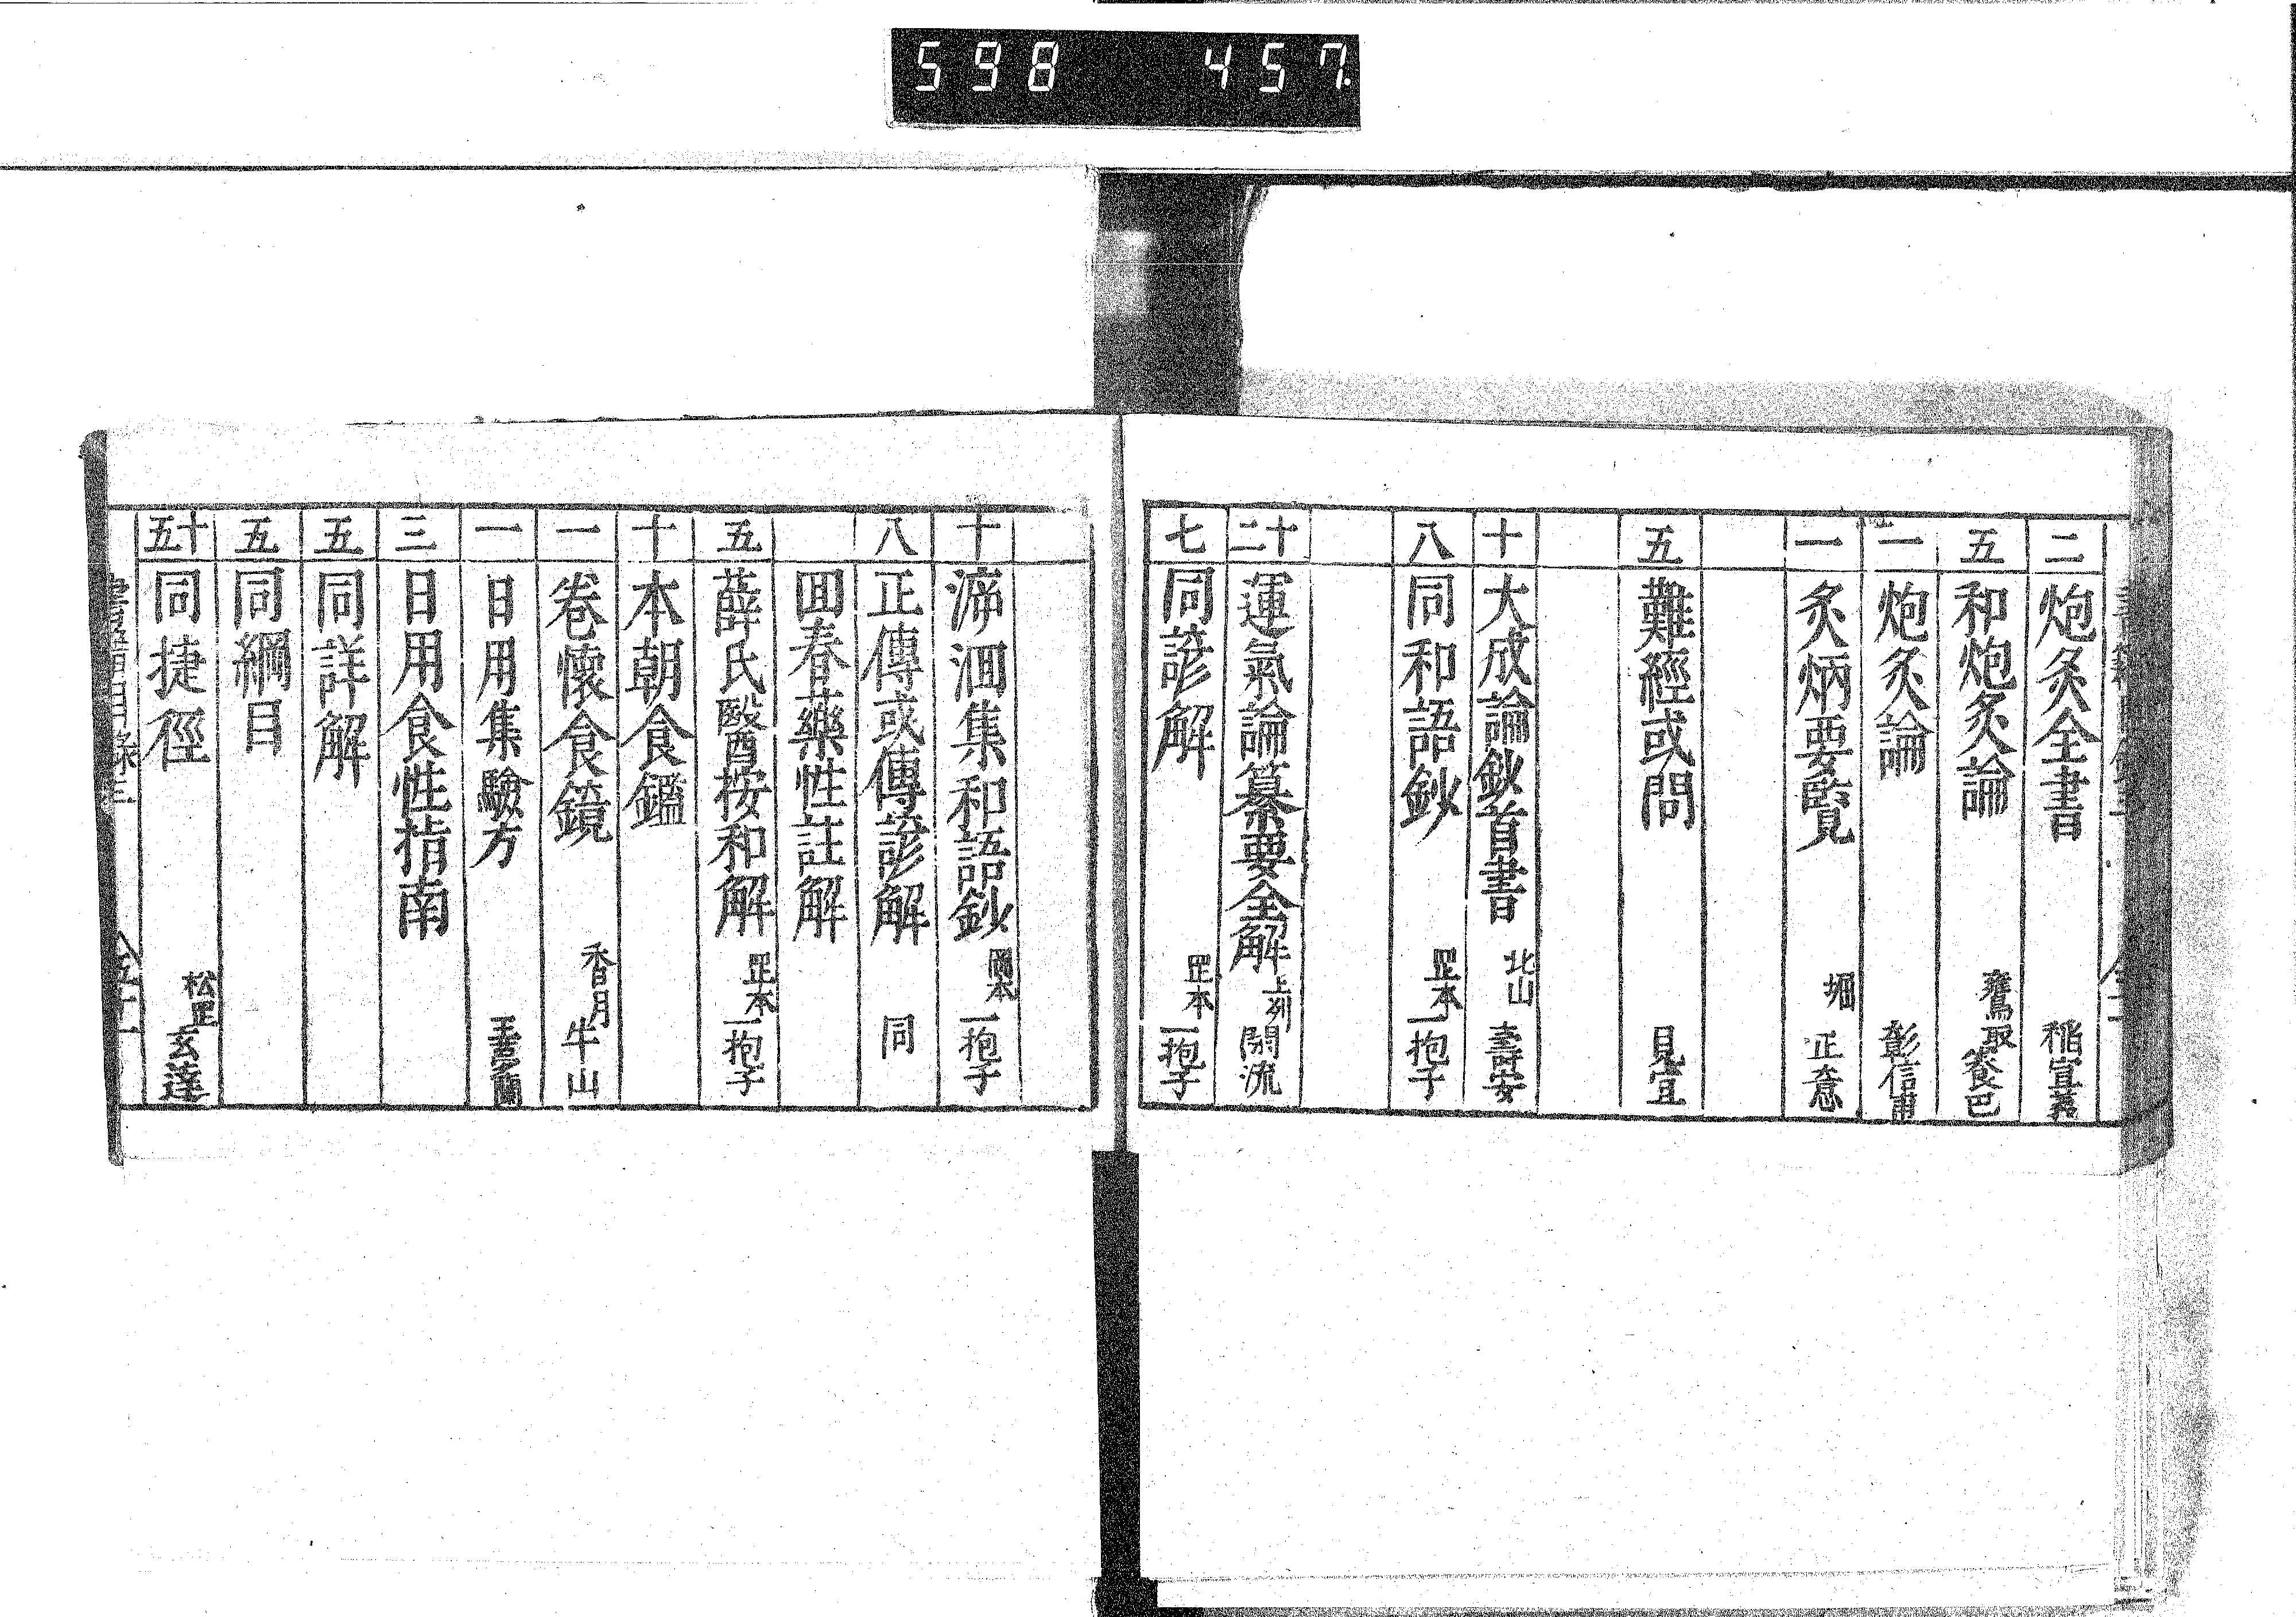 598 457.
二 炮炙全書 稲宣義
五 和炮炙論 鷹取 養巴
二 炮炙論 彰信甫
一 炙焫要覧 堀 正意
五 難經或問 見宜
十 大成論鈔首書 北山 壽安
八 同和語鈔 罡本 一抱子
十二 運氣論纂要全解 上列 閑流
七 同諺解 罡本 一抱子
十 泝洄集和語鈔 岡本 一抱子
八 正傳或傳諺解 同
回春藥性註解
五 薛氏醫按和解 罡本 一抱子
十 本朝食鑑
一 卷懷食鏡 香月 牛山
一 日用集驗方
三 日用食性指南
五 同詳解
五 同綱目
十五 同捷徑 松罡 玄達